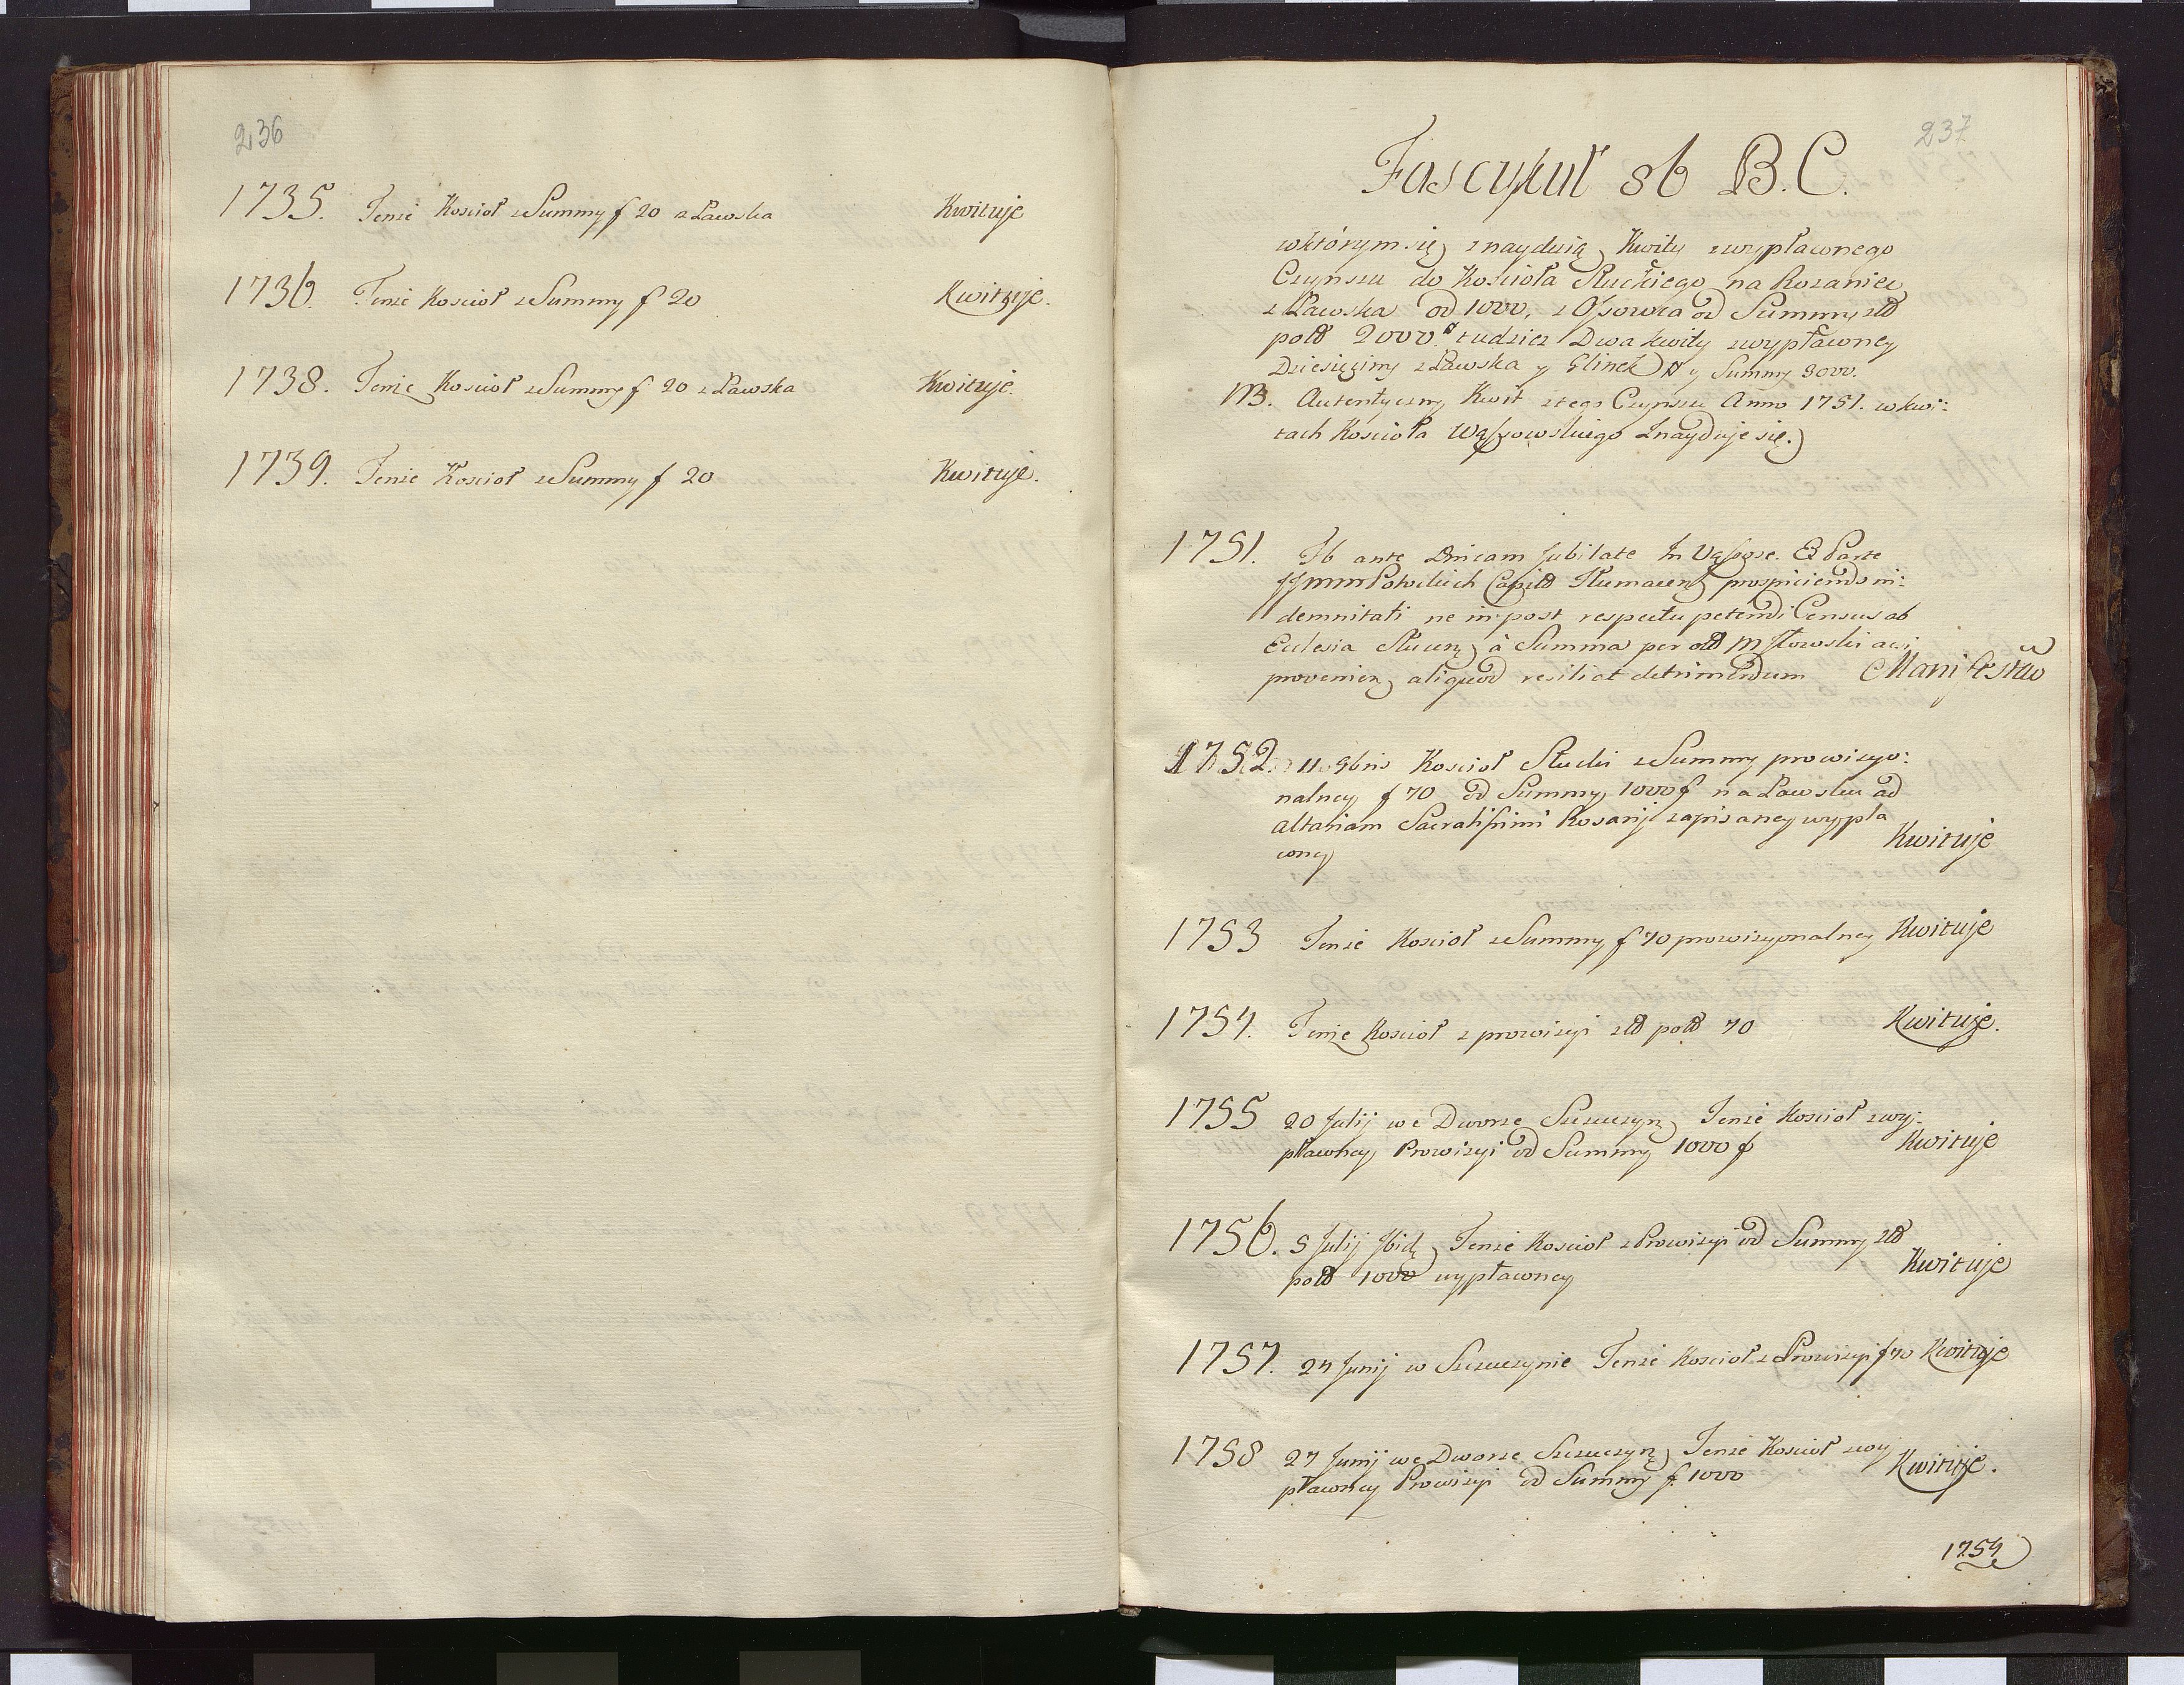 236
1735. Tenże Kościoł z Summy f 20 z Ławska Kwituje
1736. Tenże Kościoł z Summy f 20 Kwituje.
1738. Tenże Kościoł z Summy f 20 z Ławska Kwituje.
1739. Tenże Kościoł z Summy f 20 Kwituje.
237
Fascykuł 86 B.C.
w którym się znayduią Kwity z wypłaconego
Czynszu do Kościoła Słuckiego na Rozaniec
z Ławska od 1000, z Ossowca od Summy złł
poll 2000. tudziez Dwa kwity z wypłaconey
Dziesięciny z Ławska y Glinek y Summy 3000.
NB. Autentyczny Kwit z tego Czynszu Anno 1751. w kwi:
tach Kościoła Wąsowskiego znayduje się.
1751. Fb ante Dnicam Jubilate In Vąsosze. Ex Parte
prospiciendo in:
demnitati ne in post respectu petendi Census ab
Eclesia Słucen à Summa per old Mstowski aci
provenien aliquod resiliat detrimendum Manifestao
1752. 11. 9bris Kościoł Słucki z Summy prowizyo:
nalney f 70 od Summy 1000 f na Ławsku ad
altariam Sacratissimi Rosarij zapisaney wypła
coney Kwituje
1753 Tenże Kościoł z Summy f 70 prowizyonalney Kwituje
1754. Tenże Kościoł z prowizyi złł poll 70 Kwituje.
1755 20 Julij we Dworze Szczuczyn Tenże Kościoł z wy:
płaconey Prowizyi od Summy 1000 f Kwituje
1756. 5 Julij Ibid Tenże Kościoł z Prowizyi od Summy złł
poll 1000 wypłaconey Kwituje
1757. 24 Junij w Szczuczynie Tenże Kościoł z Prowizyi f 70 Kwituje
1758 27 Junij we Dworze Szczuczyn Tenże Kościoł z wy
płaconey Prowizyi od Summy f. 1000 Kwituje.
1759